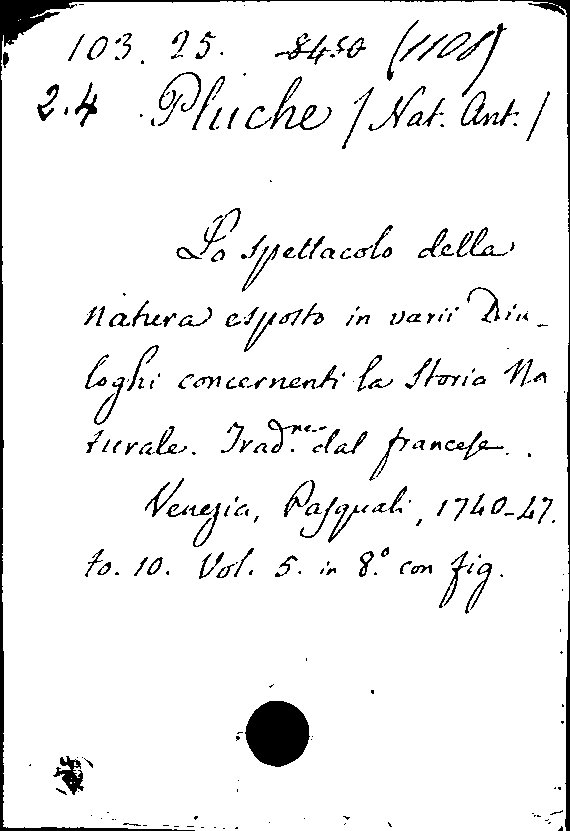 103. 25. 8450 (1108)
2.4 Pluche / Nat. Ant. /
Lo spettacolo della
natura esposto in varii Dia-
loghi concernenti la Storia Na
turale. Trad.ne dal francese.
Venezia, Pasquali, 1740-47.
to. 10. Vol. 5. in 8.º con fig.